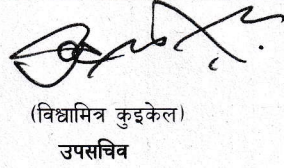 (विश्वामित्र कुइकेल)
उपसचिव